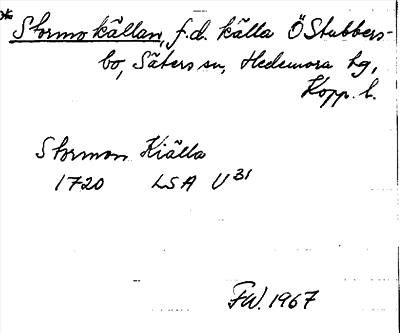 *Stormo källan, f.d. källa Ö Stubbers-
bo, Säters sn, Hedemora hg,
Kopp. l.
Stormon Kiälla
1720 LSA U31
FW. 1967